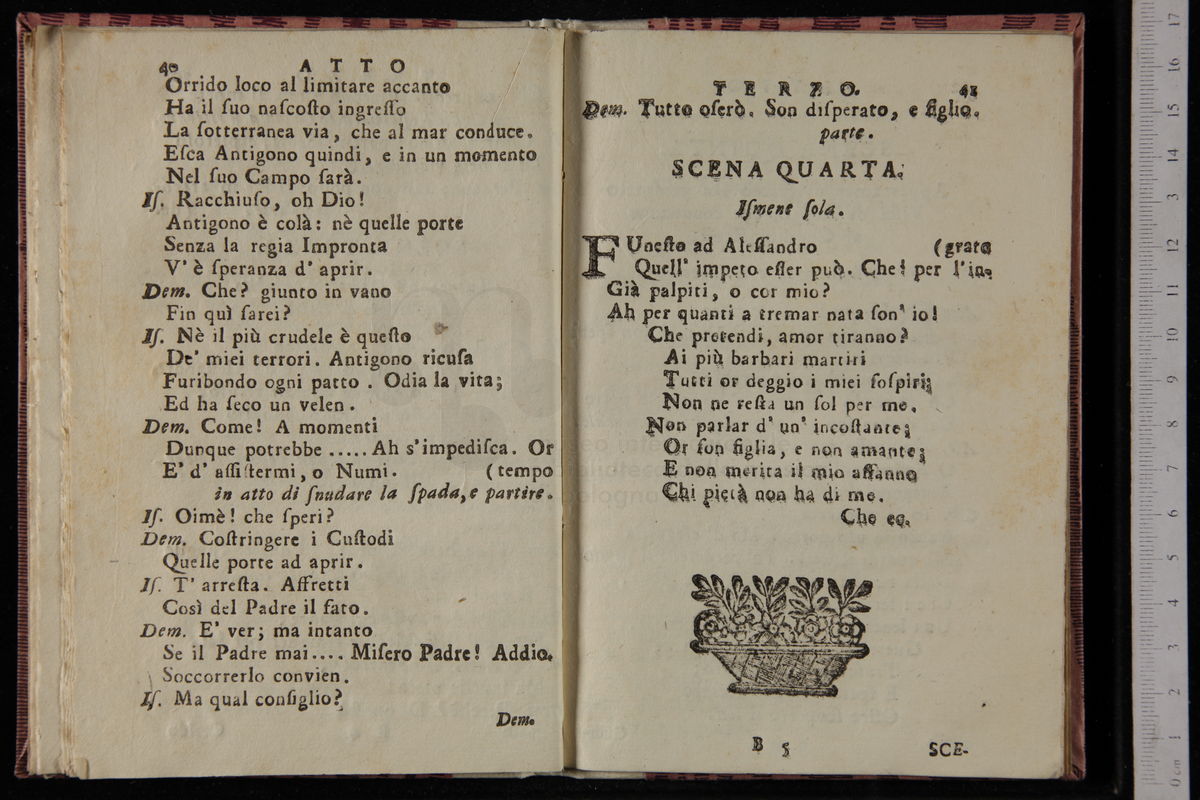 40 ATTO
Orrido loco al limitare accanto
Ha il ſuo naſcoſto ingreſſo
La ſotterranea via, che al mar conduce.
Eſca Antigono quindi, e in un momento
Nel ſuo Campo ſarà.
Iſ. Racchiuſo, oh Dio!
Antigono è colà: nè quelle porte
Senza la regia Impronta
V' è ſperanza d' aprir.
Dem. Che? giunto in vano
Fin quì ſarei?
Iſ. Nè il più crudele è queſto
De' miei terrori. Antigono ricuſa
Furibondo ogni patto . Odia la vita;
Ed ha ſeco un velen.
Dem. Come! A momenti
Dunque potrebbe ..... Ah s'impediſca. Or
E' d' aſſiſtermi, o Numi. (tempo
in atto di ſnudare la ſpada, e partire.
Iſ. Oimè! che ſperi?
Dem. Coſtringere i Cuſtodi
Quelle porte ad aprir.
Iſ. T' arreſta. Affretti
Così del Padre il fato.
Dem. E' ver; ma intanto
Se il Padre mai.... Miſero Padre! Addio.
Soccorrerlo convien.
Iſ. Ma qual conſiglio?
Dem.
TERZO. 41
Dem. Tutto oſerò. Son diſperato, e figlio.
parte.
SCENA QUARTA.
Iſmene ſola.
FUneſto ad Aleſſandro (grato
Quell' impeto eſſer può. Che! per l'in-
Già palpiti, o cor mio?
Ah per quanti a tremar nata ſon' io!
Che pretendi, amor tiranno?
Ai più barbari martiri
Tutti or deggio i miei ſoſpiri;
Non ne reſta un ſol per me.
Non parlar d' un' incoſtante;
Or ſon figlia, e non amante;
E non merita il mio affanno
Chi pietà non ha di me.
Che ec.
B 5 SCE-